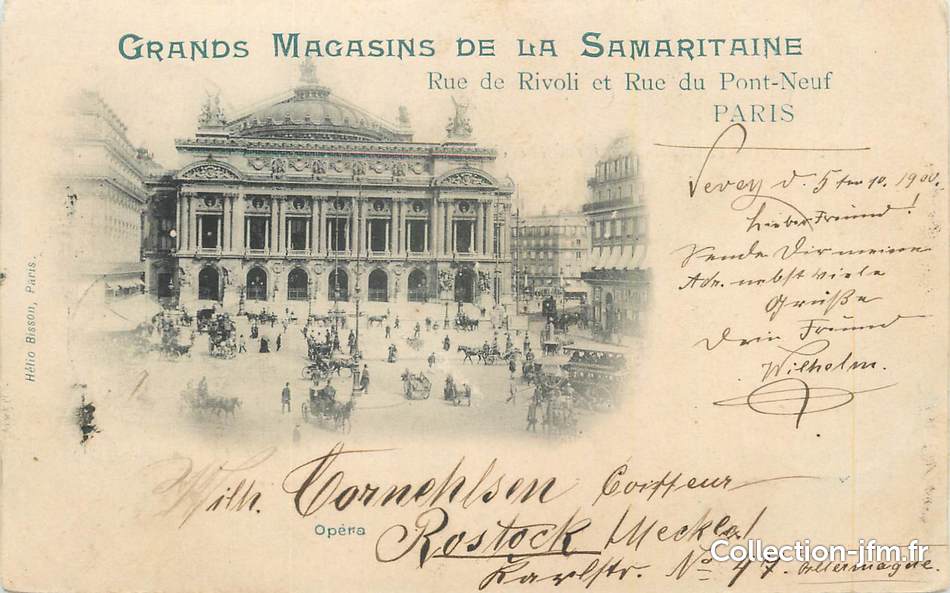 GRANDS MAGASINS DE LA SAMARITAINE
Rue de Rivoli et Rue du Pont-Neuf
PARIS
Vevey d. 5 ten 10. 1900.
Lieber Freund!
Sende Dir meine
Adr. nebst viele
Grüße
Dein Freund
Wilhelm.
Hélio Bisson, Paris.
Wilh. Cornehlsen Coiffeur
Opéra
Rostock Meckl.
Karlstr. No 47. Allemagne.
Collection-jfm.fr